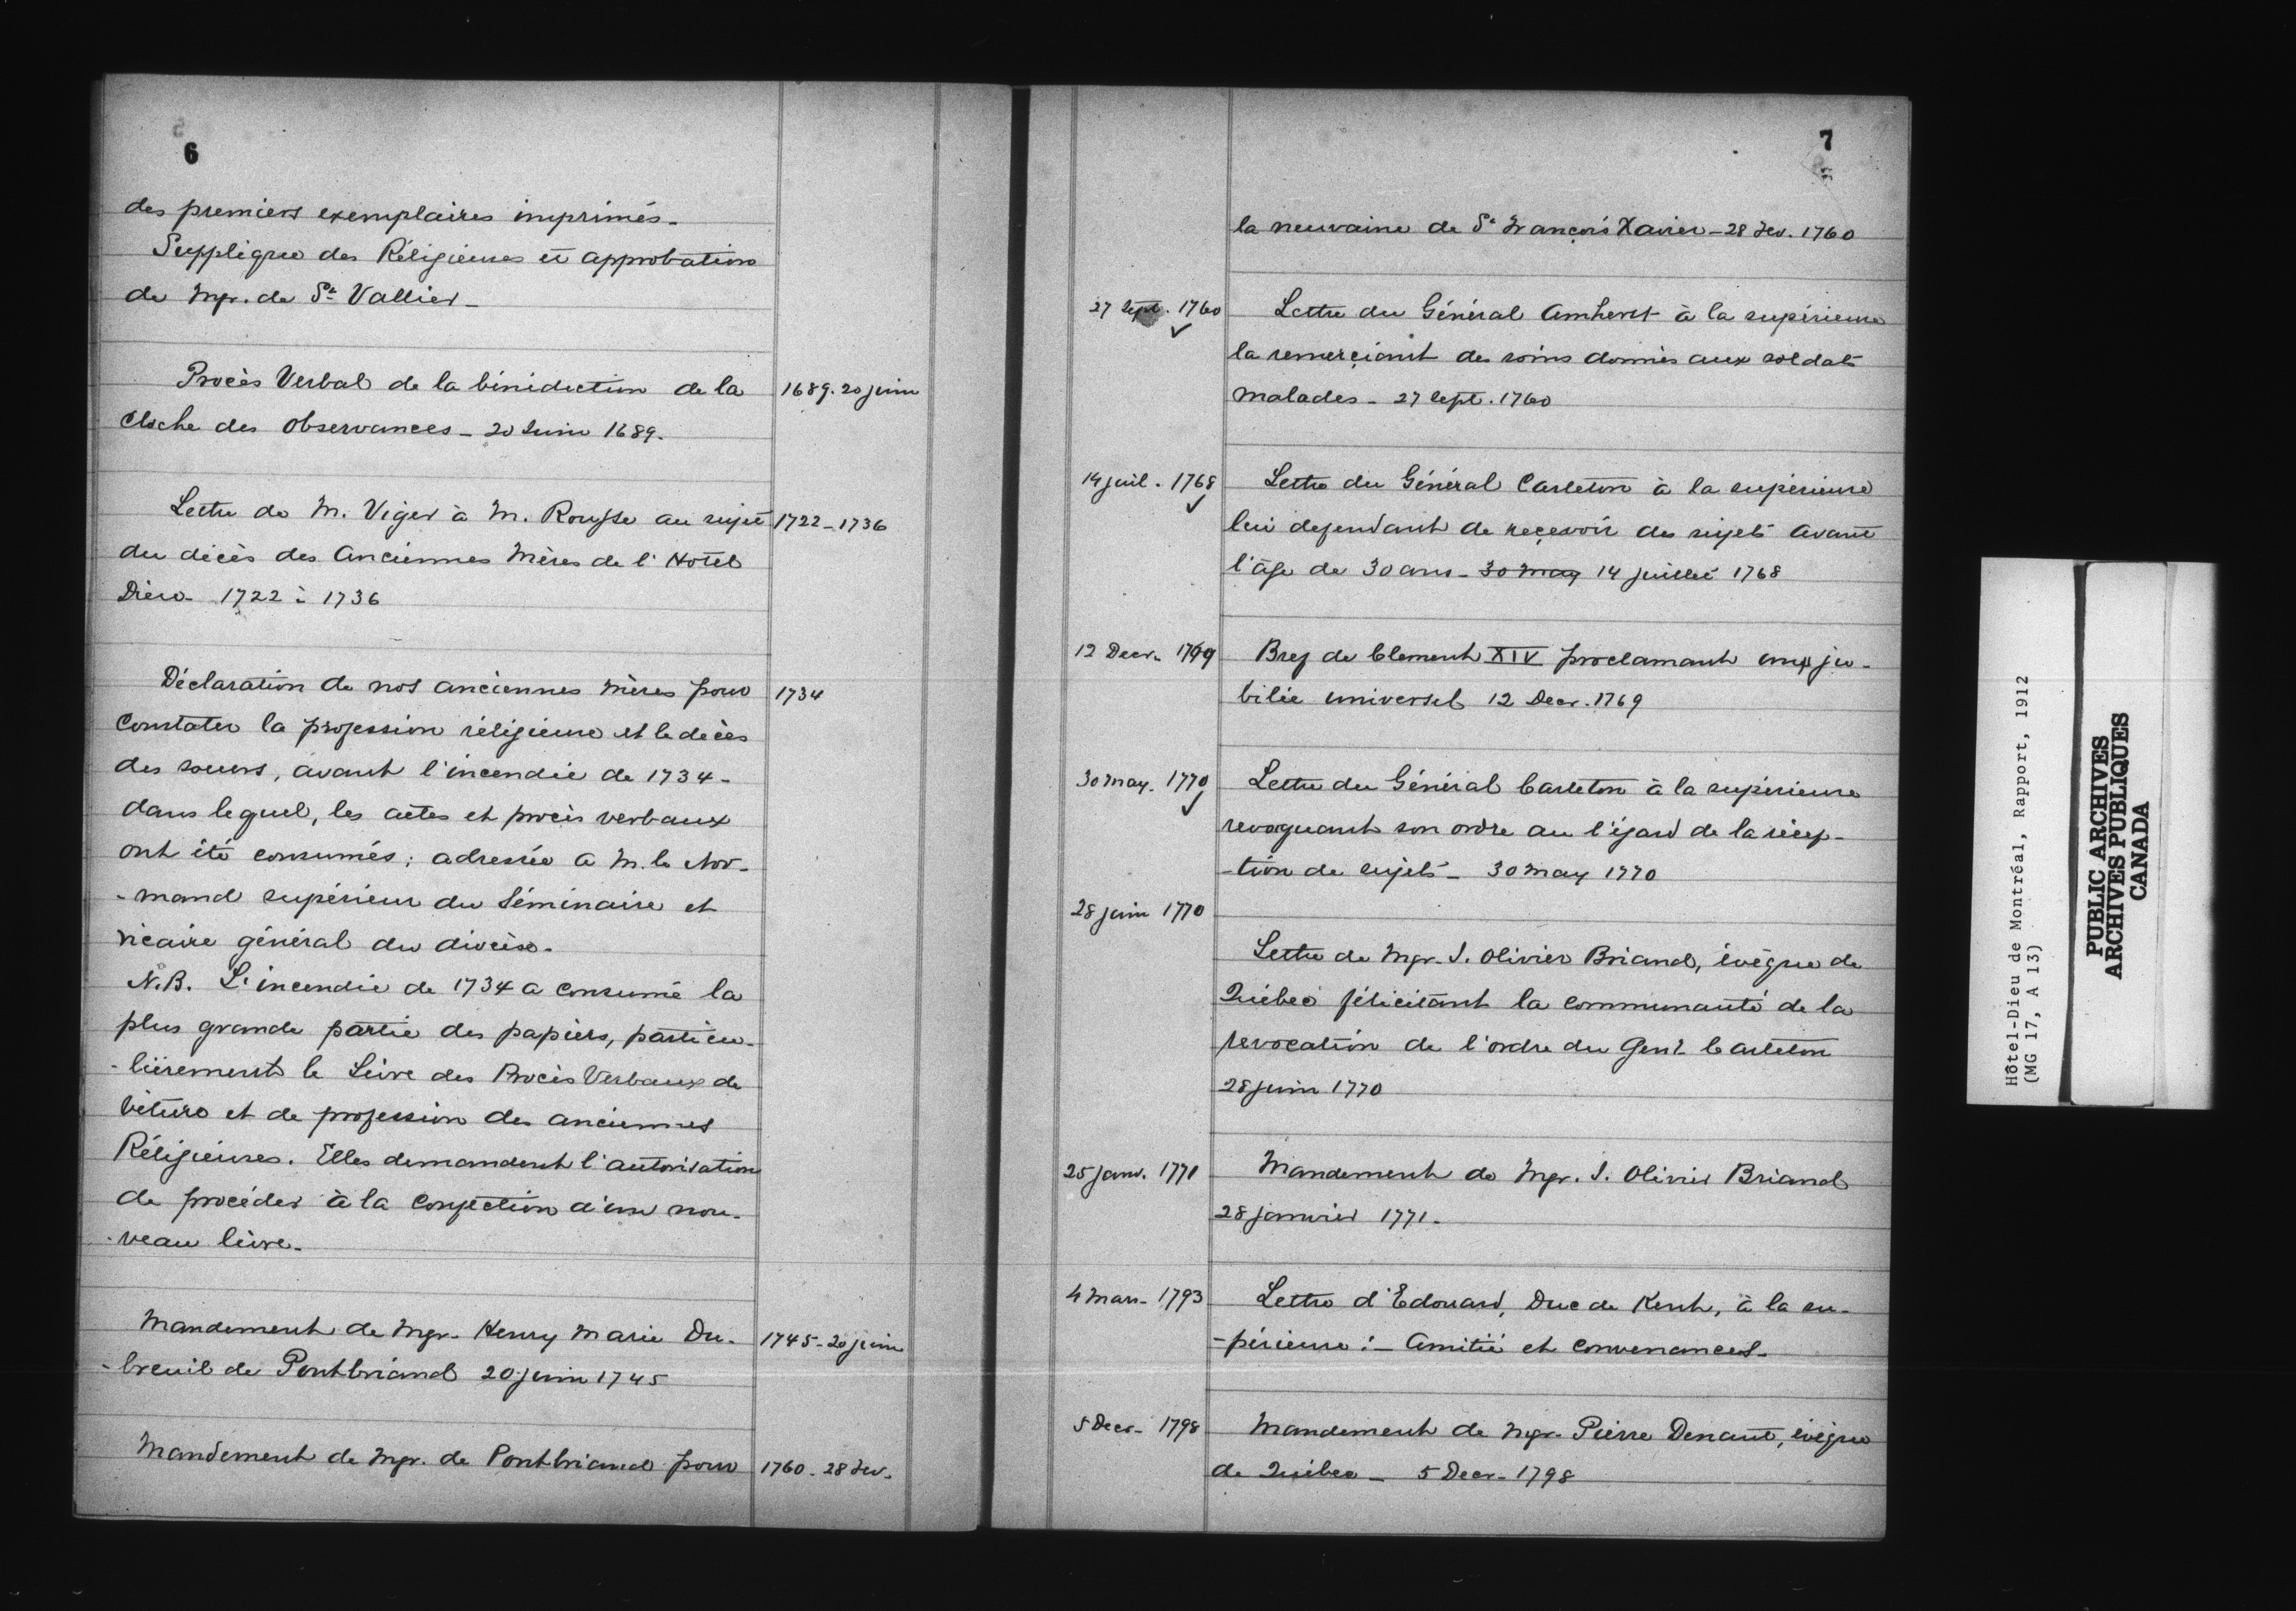 6
des premiers exemplaires imprimés_
Supplique des Réligieuses et approbation
de Mgr. de St Vallier_
Procès Verbal de la bénédiction de la
1689. 20 juin
Cloche des Observances_ 20 Juin 1689.
Lettre de M. Viger à M. Rousse au sujet
1722_1736
du décès des Anciennes Mères de l'Hotel
Dieu_ 1722 à 1736
Déclaration de nos anciennes Mères pour
1734
Constater la profession réligieuse et le décès
des soeurs, avant l'incendie de 1734_
dans lequel, les actes et procès verbaux
ont été consumés; adressée a M. le Nor-
-mand supérieur du Séminaire et
vicaire général du diocèse_
N.B. L'incendie de 1734 a consumé la
plus grande partie des papiers, particu-
-lièrement le Livre des Procès Verbaux de
vêture et de profession des anciennes
Réligieuses. Elles demandent l'autorisation
de procéder à la Confection d'un nou-
-veau livre_
Mandement de Mgr. Henry Marie Du-
1745_20 juin
-breuil de Pontbriand 20 juin 1745
Mandement de Mgr. de Pontbriand pour
1760_28 Fev.
7
la neuvaine de St François Xavier_28 Fev. 1760
27 Sept. 1760
Lettre du Général Amherst à la supérieure
la remerçiant des soins donnés aux soldats
malades_ 27 Sept. 1760
14 juil. 1768
Lettre du Général Carleton à la supérieure
lui defendant de reçevoir des sujets avant
l'âge de 30 ans_ 30 may 14 juillet 1768
12 Decr. 1769
Bref de Clement XIV proclamant un ju-
bilée universel 12 Decr. 1769
30 May. 1770
Lettre du Général Carleton à la supérieure
revoquant son ordre au l'égard de la récep-
-tion de sujets_ 30 May 1770
28 juin 1770
Lettre de Mgr. J. Olivier Briand, évêque de
Québec félicitant la communauté de la
revocation de l'ordre du Genl Carleton
28 juin 1770
25 janv. 1771
Mandement de Mgr. J. Olivier Briand
28 janvier 1771_
4 Mars_ 1793
Lettre d'Edouard, Duc de Kent, à la su-
-périeure:_ Amitié et convenances_
5 Decr_ 1798
Mandement de Mgr. Pierre Denaut, évêque
de Québec_ 5 Decr_ 1798
Hôtel-Dieu de Montréal, Rapport, 1912
(MG 17, A 13)
PUBLIC ARCHIVES
ARCHIVES PUBLIQUES
CANADA